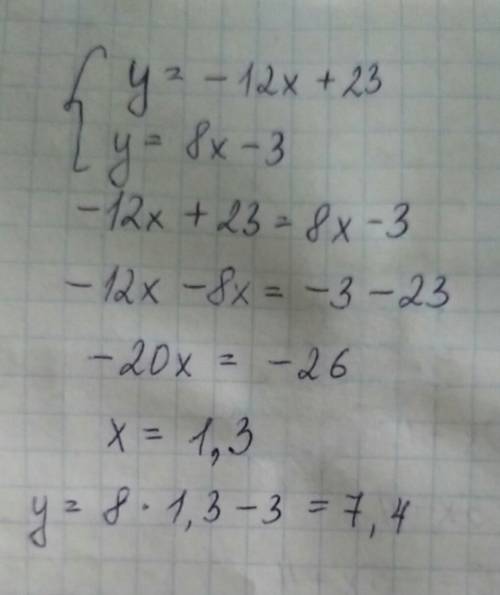 { y = -12x + 23
y = 8x - 3
-12x + 23 = 8x - 3
-12x - 8x = -3 - 23
-20x = -26
x = 1,3
y = 8 · 1,3 - 3 = 7,4